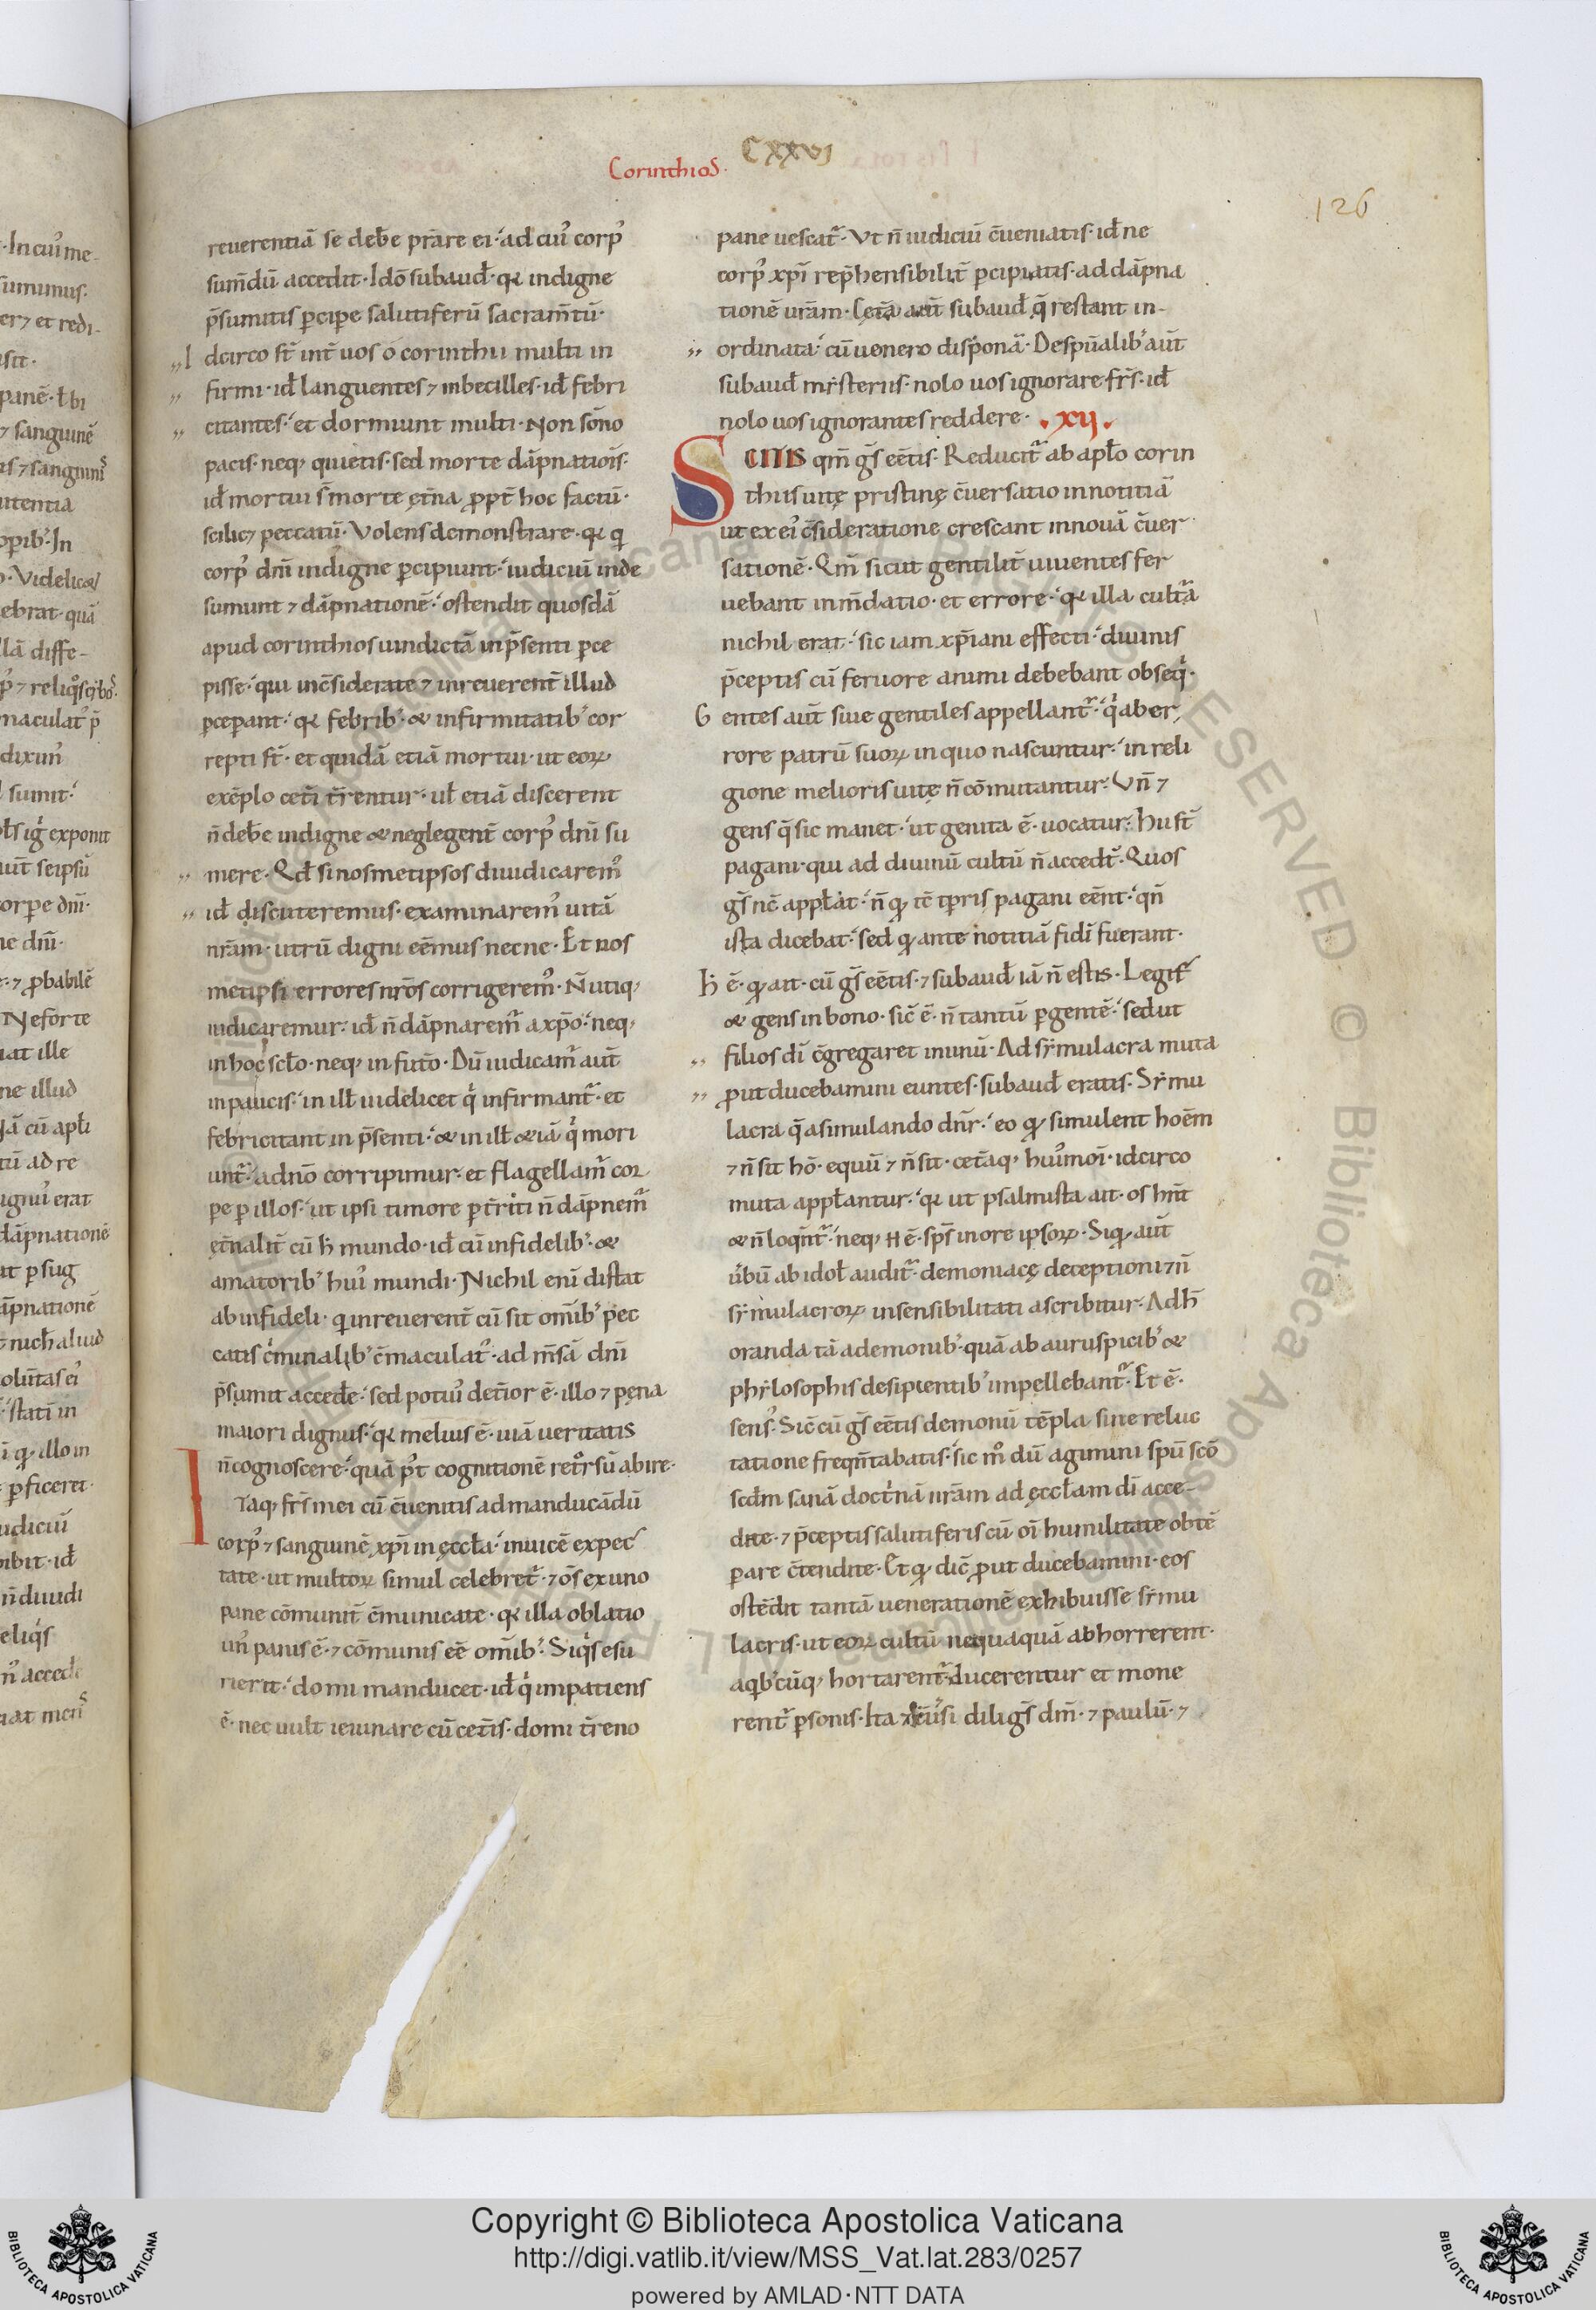 CXXVI
Corinthios.
126
reuerentiā se deb̄e p̄rare ei· ad cui᾽ corp᾽
sum̄dū accedit· Idō subaud̄· qꝛ indigne
p̄sumitis p̄cipe salutiferū sacram̄tū·
Idcirco st̄ int̄ uos o corinthii multi in
firmi· id̄ languentes ⁊ inbecilles· id̄ febri
citantes· et dormiunt multi· Non som̄no
pacis· neq; quietis· sed morte dāpnatiōis·
id̄ mortui s̄ morte ęt̄na ꝓpt̄ hoc factū·
scilicꝫ peccatū· Volens demonstrare· qꝛ qi
corp᾽ dn̄i indigne ꝑcipiunt· iudiciū inde
sumunt ⁊ dāpnationē· ostendit quosdā
apud corinthios uindictā in p̄senti ꝑce
pisse· qui inc̄siderate ⁊ inreuerent̄ illud
ꝑceperant· qꝛ febrib᾽ & infirmitatib᾽ cor
repti st̄· et quidā etiā mortui· ut eoꝝ
exēplo cet̄i t̄rentur· ul̄ etiā discerent
n̄ deb̄e indigne & neglegent̄ corp᾽ dn̄i su
mere· Qd̄ si nosmetipsos diiudicarem᾽
id̄ discuteremus· examinarem᾽ uitā
nr̄am· utrū digni eēmus necne· Et nos
metipsi errores nr̄os corrigerem᾽· N̄ utiq;
iudicaremur· id̄ n̄ dāpnarem̄ a xp̄o· neq;
in hoc scl̄o· neq; in futō· Dū iudicam̄ aūt
in paucis· in ill̄ uidelicet q᾽ infirmant̄· et
febricitant in p̄senti· & in ill̄ & iā q᾽ mori
unt̄· a dn̄o corripimur· et flagellam̄ cor
pe ꝑ illos· ut ipsi timore ꝑt̄riti n̄ dāpnem̄
ęt̄nalit̄ cū h̄ mundo· id̄ cū infidelib᾽ &
amatorib᾽ hui᾽ mundi· Nichil enī distat
ab infideli· qi inreuerent̄ cū sit om̄ib᾽ pec
catis c̄minalib᾽ c̄maculat᾽ ad m̄sā dn̄i
p̄sumit acced̄e· sed potiu᾽ det̄ior ē· illo ⁊ pęna
maiori dignus· qꝛ melius ē· uiā ueritatis
n̄ cognoscere· quā p᾽t cognitionē ret᾽rsū abire·
Itaq; fr̄s mei cū c̄uenitis ad manducādū
corp᾽ ⁊ sanguinē xp̄i in ęccl̄a· inuicē expec
tate· ut multoꝝ simul celebret̄· ⁊ ōs ex uno
pane cōmunit̄ c̄municate· qꝛ illa oblatio
un᾽ panis ē· ⁊ cōmunis eē om̄ib᾽· Siq᾽s esu
rierit· domi manducet· id̄ q᾽ impatiens
ē· nec uult ieiunare cū cet̄is· domi t̄reno
pane uescat̄· Vt n̄ iudiciū c̄ueniatis· id̄ ne
corp᾽ xp̄i rep̄hensibilit̄ ꝑcipiatis· ad dāpna
tionē ur̄am· Cęt̄a aūt subaud̄ q̄ restant in-
ordinata· cū uenero disponā· De sp̄ualib᾽ aūt
subaud̄ mẏsteriis· nolo uos ignorare fr̄s· id̄
nolo uos ignorantes reddere· .xij.
SCITIS qm̄ gs̄ eētis· Reducit̄ ab apl̄o corin
thiis uitę pristinę c̄uersatio in notitiā
ut ex ei᾽ c̄sideratione crescant in nouā c̄uer
sationē· Qm̄ sicut gentilit̄ uiuentes fer
uebant in m̄datio· et errore· qꝛ illa cult̄a
nichil erat· sic iam xp̄iani effecti· diuinis
p̄ceptis cū feruore animi debebant obseq᾽·
Gentes aūt siue gentiles appellant̄· q᾽ ab er
rore patrū suoꝝ in quo nascuntur· in reli
gione melioris uitę n̄ cōmutantur· Vn̄ ⁊
gens q̄ sic manet· ut genita ē· uocatur· Hi st̄
pagani· qui ad diuinū cultū n̄ accedt̄· Quos
gs̄ nc̄ appl̄at· n̄ qꝫ tc̄ tp̄ris pagani eēnt· qn̄
ista dicebat· sed qꝫ ante notitiā fidī fuerant·
h̄ ē· qꝫ ait· cū gs̄ eētis· ⁊ subaud̄ iā n̄ estis· Legit̄
& gens in bono· sic̄ ē· n̄ tantū ꝑ gentē· sed ut
filios dī c̄gregaret in unū· Ad sẏmulacra muta
ꝓut ducebamini euntes· subaud̄ eratis· Sẏmu
lacra q̄ asimulando dn̄r· eo qꝫ simulent hoēm
⁊ n̄ sit hō· equū ⁊ n̄ sit· cet̄aq; hui᾽moī· idcirco
muta appl̄antur· qꝛ ut psalmista ait· os hn̄t
& n̄ loqn̄t̄· neq; H ē· sp̄s in ore ipsoꝝ· Siqꝫ aūt
ūbū ab idol̄ audit̄· demoniacę deceptioni ⁊ n̄
sẏmulacroꝝ insensibilitati ascribitur· Ad h̄
oranda tā a demonib᾽ quā ab auruspicib᾽ &
phẏlosophis desipientib᾽ impellebant̄· Et ē·
sens᾽· Sic̄ cū gs̄ eētis demonū tēpla sine reluc
tatione freqn̄tabatis· sic m᾽ dū agimini sp̄ū scō
scd̄m sanā doct̄nā ur̄am ad ęccl̄am dī acce-
dite· ⁊ p̄ceptis salutiferis cū oī humilitate obtē
perare c̄tendite· Et qꝫ dic̄ ꝓut ducebamini· eos
ostēdit tantā uenerationē exhibuisse sẏmu
lacris· ut eoꝝ cultū nequaquā abhorrerent·
a qib᾽cūq; hortarent̄· ducerentur et mone
rent̄ ꝑsonis· Ita ⁊ diligs̄ dm̄· ⁊ paulū· ⁊
Copyright © Biblioteca Apostolica Vaticana
http://digi.vatlib.it/view/MSS_Vat.lat.283/0257
powered by AMLAD·NTT DATA
BIBLIOTECA APOSTOLICA VATICANA
BIBLIOTECA APOSTOLICA VATICANA